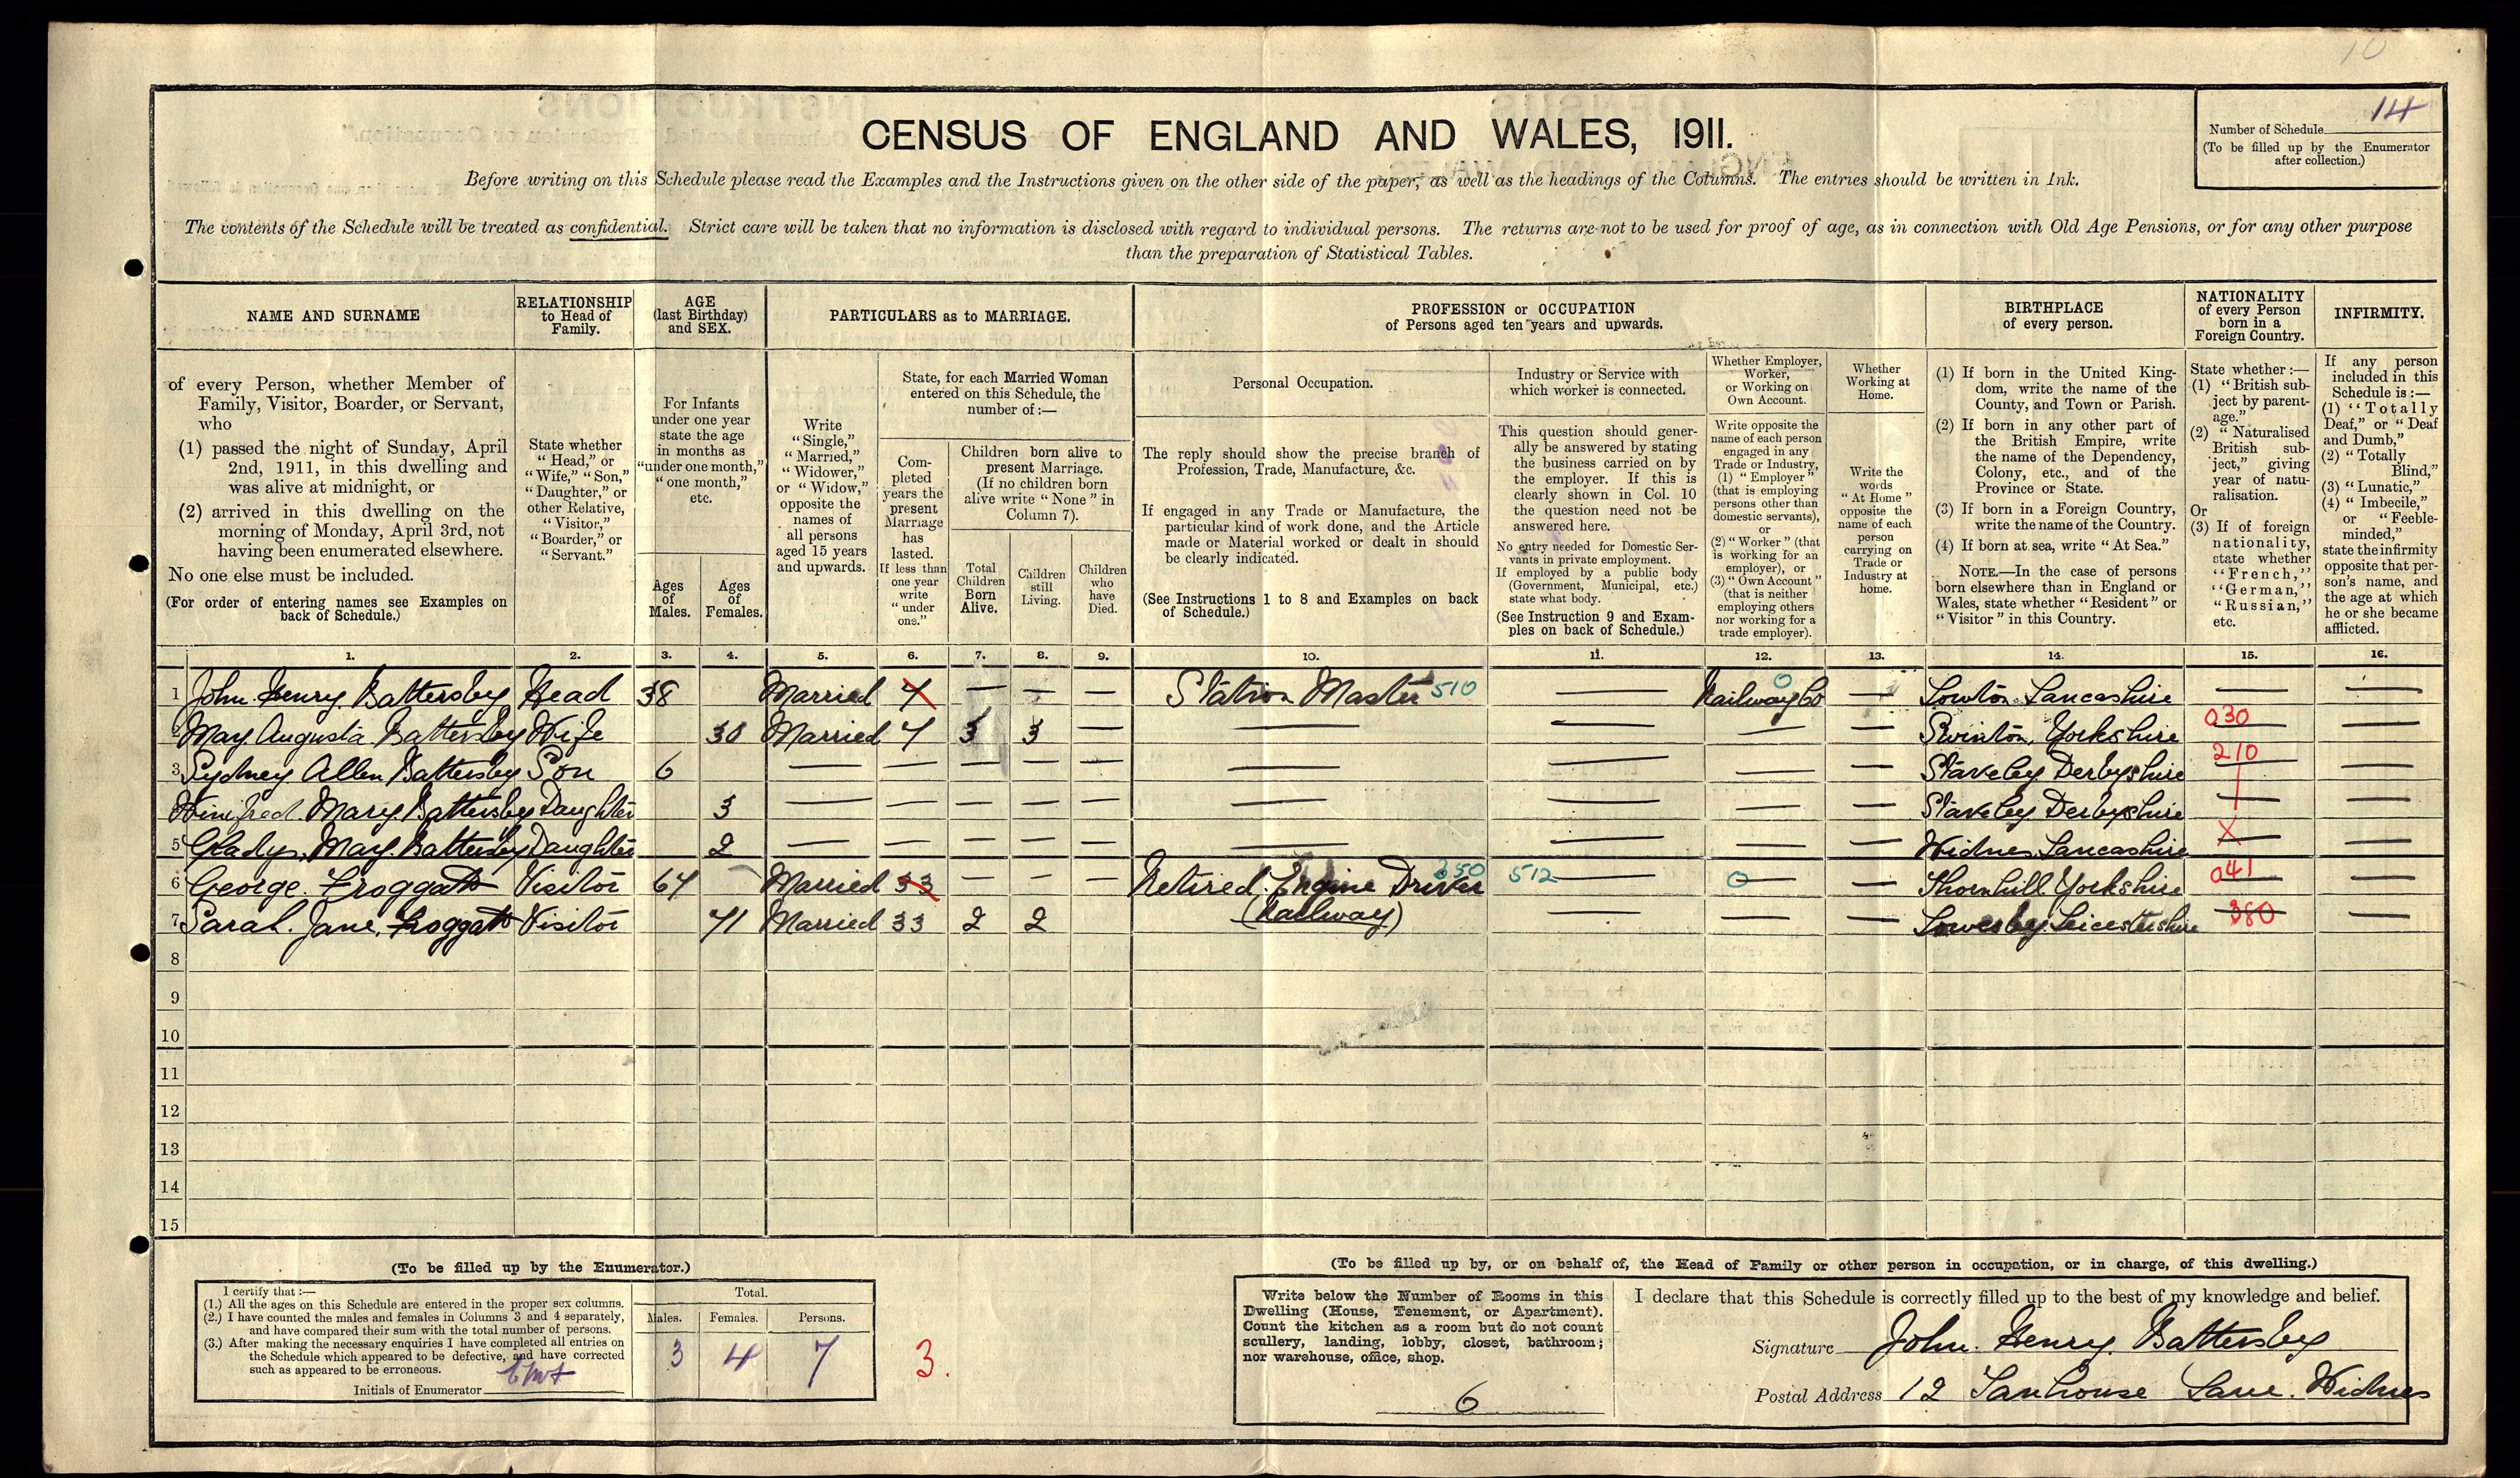 10
14
Number of Schedule
(To be filled up by the Enumerator
after collection.)
CENSUS OF ENGLAND AND WALES, 1911.
Before writing on this Schedule please read the Examples and the Instructions given on the other side of the paper, as well as the headings of the Columns. The entries should be written in Ink.
The contents of the Schedule will be treated as confidential. Strict care will be taken that no information is disclosed with regard to individual persons. The returns are not to be used for proof of age, as in connection with Old Age Pensions, or for any other purpose
than the preparation of Statistical Tables.
NAME AND SURNAME
of every Person, whether Member of
Family, Visitor, Boarder, or Servant,
who
(1) passed the night of Sunday, April
2nd, 1911, in this dwelling and
was alive at midnight, or
(2) arrived in this dwelling on the
morning of Monday, April 3rd, not
having been enumerated elsewhere.
No one else must be included.
(For order of entering names see Examples on
back of Schedule.)
RELATIONSHIP
to Head of
Family.
State whether
"Head," or
"Wife," "Son,"
"Daughter," or
other Relative,
"Visitor,"
"Boarder," or
"Servant."
AGE
(last Birthday)
and SEX.
For Infants
under one year
state the age
in months as
"under one month,"
"one month,"
etc.
Ages
of
Males.
Ages
of
Females.
PARTICULARS as to MARRIAGE.
Write
"Single,"
"Married,"
"Widower,"
or "Widow,"
opposite the
names of
all persons
aged 15 years
and upwards.
State, for each Married Woman
entered on this Schedule, the
number of:—
Com-
pleted
years the
present
Marriage
has
lasted.
If less than
one year
write
"under
one."
Children born alive to
present Marriage.
(If no children born
alive write "None" in
Column 7).
Total
Children
Born
Alive.
Children
still
Living.
Children
who
have
Died.
PROFESSION or OCCUPATION
of Persons aged ten years and upwards.
Personal Occupation.
The reply should show the precise branch of
Profession, Trade, Manufacture, &c.
If engaged in any Trade or Manufacture, the
particular kind of work done, and the Article
made or Material worked or dealt in should
be clearly indicated.
(See Instructions 1 to 8 and Examples on back
of Schedule.)
Industry or Service with
which worker is connected.
This question should gener-
ally be answered by stating
the business carried on by
the employer. If this is
clearly shown in Col. 10
the question need not be
answered here.
No entry needed for Domestic Ser-
vants in private employment.
If employed by a public body
(Government, Municipal, etc.)
state what body.
(See Instruction 9 and Exam-
ples on back of Schedule.)
Whether Employer,
Worker,
or Working on
Own Account.
Write opposite the
name of each person
engaged in any
Trade or Industry,
(1) "Employer"
(that is employing
persons other than
domestic servants),
or
(2) "Worker" (that
is working for an
employer), or
(3) "Own Account"
(that is neither
employing others
nor working for a
trade employer).
Whether
Working at
Home.
Write the
words
"At Home"
opposite the
name of each
person
carrying on
Trade or
Industry at
home.
BIRTHPLACE
of every person.
(1) If born in the United King-
dom, write the name of the
County, and Town or Parish.
(2) If born in any other part of
the British Empire, write
the name of the Dependency,
Colony, etc., and of the
Province or State.
(3) If born in a Foreign Country,
write the name of the Country.
(4) If born at sea, write "At Sea."
NOTE.—In the case of persons
born elsewhere than in England or
Wales, state whether "Resident" or
"Visitor" in this Country.
NATIONALITY
of every Person
born in a
Foreign Country.
State whether:—
(1) "British sub-
ject by parent-
age."
(2) "Naturalised
British sub-
ject," giving
year of natu-
ralisation.
Or
(3) If of foreign
nationality,
state whether
"French,"
"German,"
"Russian,"
etc.
INFIRMITY.
If any person
included in this
Schedule is:—
(1) "Totally
Deaf," or "Deaf
and Dumb,"
(2) "Totally
Blind,"
(3) "Lunatic,"
(4) "Imbecile,"
or "Feeble-
minded,"
state the infirmity
opposite that per-
son's name, and
the age at which
he or she became
afflicted.
1. 2. 3. 4. 5. 6. 7. 8. 9. 10. 11. 12. 13. 14. 15. 16.
1 John Henry Battersby Head 38 Married 7 — — — Station Master 510 — Railway Co 0 — Lowton Lancashire — —
2 May Augusta Battersby Wife 30 Married 7 3 3 — — — — — Swinton, Yorkshire 030 —
3 Sydney Allen Battersby Son 6 — — — — — — — — — Staveley Derbyshire 210 —
Winifred Mary Battersby Daughter 3 — — — — — — — — — Staveley Derbyshire — —
5 Gladys May Battersby Daughter 2 — — — — — — — — — Widnes Lancashire X —
6 George Froggatt Visitor 67 Married 33 — — — Retired Engine Driver 350 512 — 0 — Thornhill Yorkshire 041 —
(Railway)
7 Sarah Jane Froggatt Visitor 71 Married 33 2 2 — — — Lowesby Leicestershire 380 —
8
9
10
11
12
13
14
15
(To be filled up by the Enumerator.)
I certify that:—
(1.) All the ages on this Schedule are entered in the proper sex columns.
(2.) I have counted the males and females in Columns 3 and 4 separately,
and have compared their sum with the total number of persons.
(3.) After making the necessary enquiries I have completed all entries on
the Schedule which appeared to be defective, and have corrected
such as appeared to be erroneous.
Initials of Enumerator
Total.
Males. Females. Persons.
3 4 7
3.
(To be filled up by, or on behalf of, the Head of Family or other person in occupation, or in charge, of this dwelling.)
Write below the Number of Rooms in this
Dwelling (House, Tenement, or Apartment).
Count the kitchen as a room but do not count
scullery, landing, lobby, closet, bathroom;
nor warehouse, office, shop.
6
I declare that this Schedule is correctly filled up to the best of my knowledge and belief.
Signature John Henry Battersby
Postal Address 12 Tanhouse Lane. Widnes